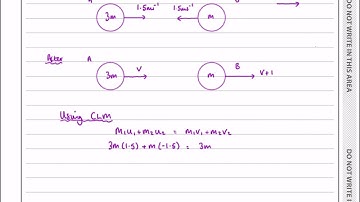 A 1.5ms⁻¹ 1.5ms⁻¹
3m m
After A B
3m V m V+1
Using CLM
m₁u₁+m₂u₂ = m₁v₁+m₂v₂
3m(1.5)+m(-1.5) = 3m
DO NOT WRITE IN THIS AREA
DO NOT WRITE